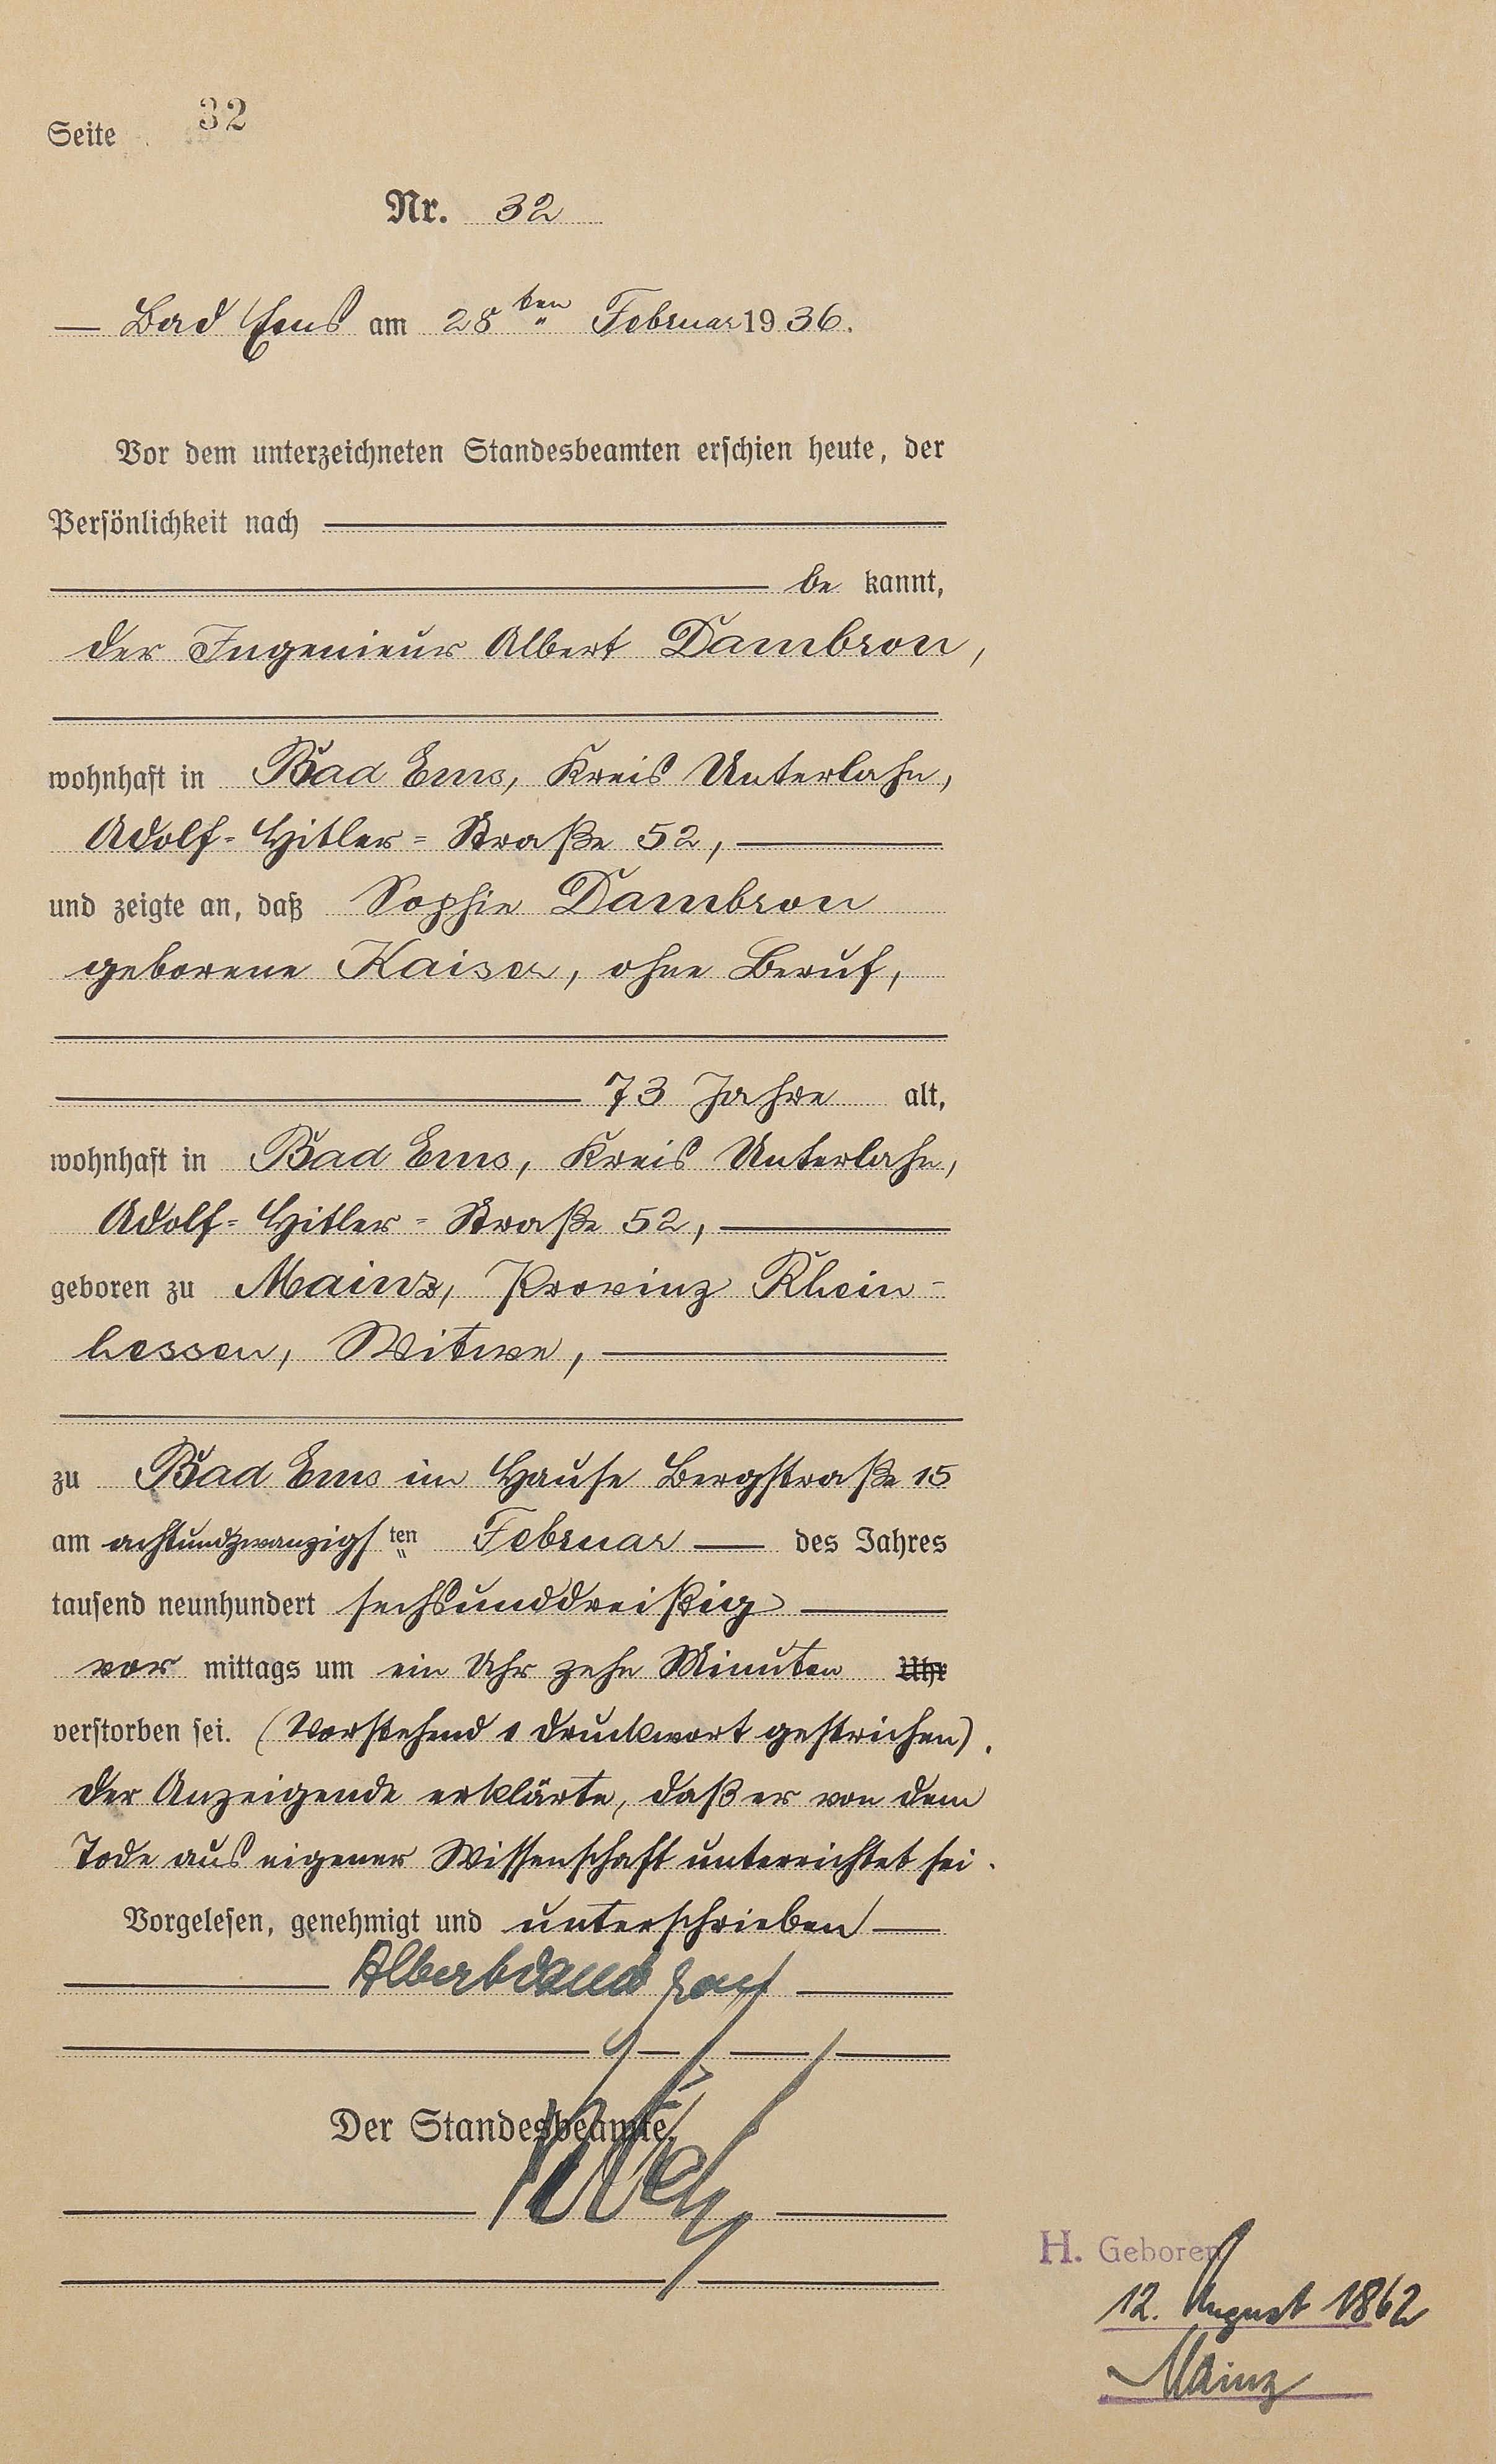 Seite 32
Nr. 32
Bad Ems am 28ten Februar 1936.
Vor dem unterzeichneten Standesbeamten erschien heute, der
Persönlichkeit nach
be kannt,
der Ingenieur Albert Dambron,
wohnhaft in Bad Ems, Kreis Unterlahn,
Adolf=Hitler=Straße 52,
und zeigte an, daß Sophie Dambron
geborene Kaiser, ohne Beruf,
73 Jahre alt,
wohnhaft in Bad Ems, Kreis Unterlahn,
Adolf=Hitler=Straße 52,
geboren zu Mainz, Provinz Rhein-
hessen, Witwe,
zu Bad Ems im Hause Bergstraße 15
am achtundzwanzigsten Februar des Jahres
tausend neunhundert sechsunddreißig
vor mittags um ein Uhr zehn Minuten Uhr
verstorben sei. (Vorstehend 1 Druckwort gestrichen).
Der Anzeigende erklärte, daß er von dem
Tode aus eigener Wissenschaft unterrichtet sei.
Vorgelesen, genehmigt und unterschrieben
Albert Dambron
Der Standesbeamte.
H. Geboren
12. August 1862
Mainz